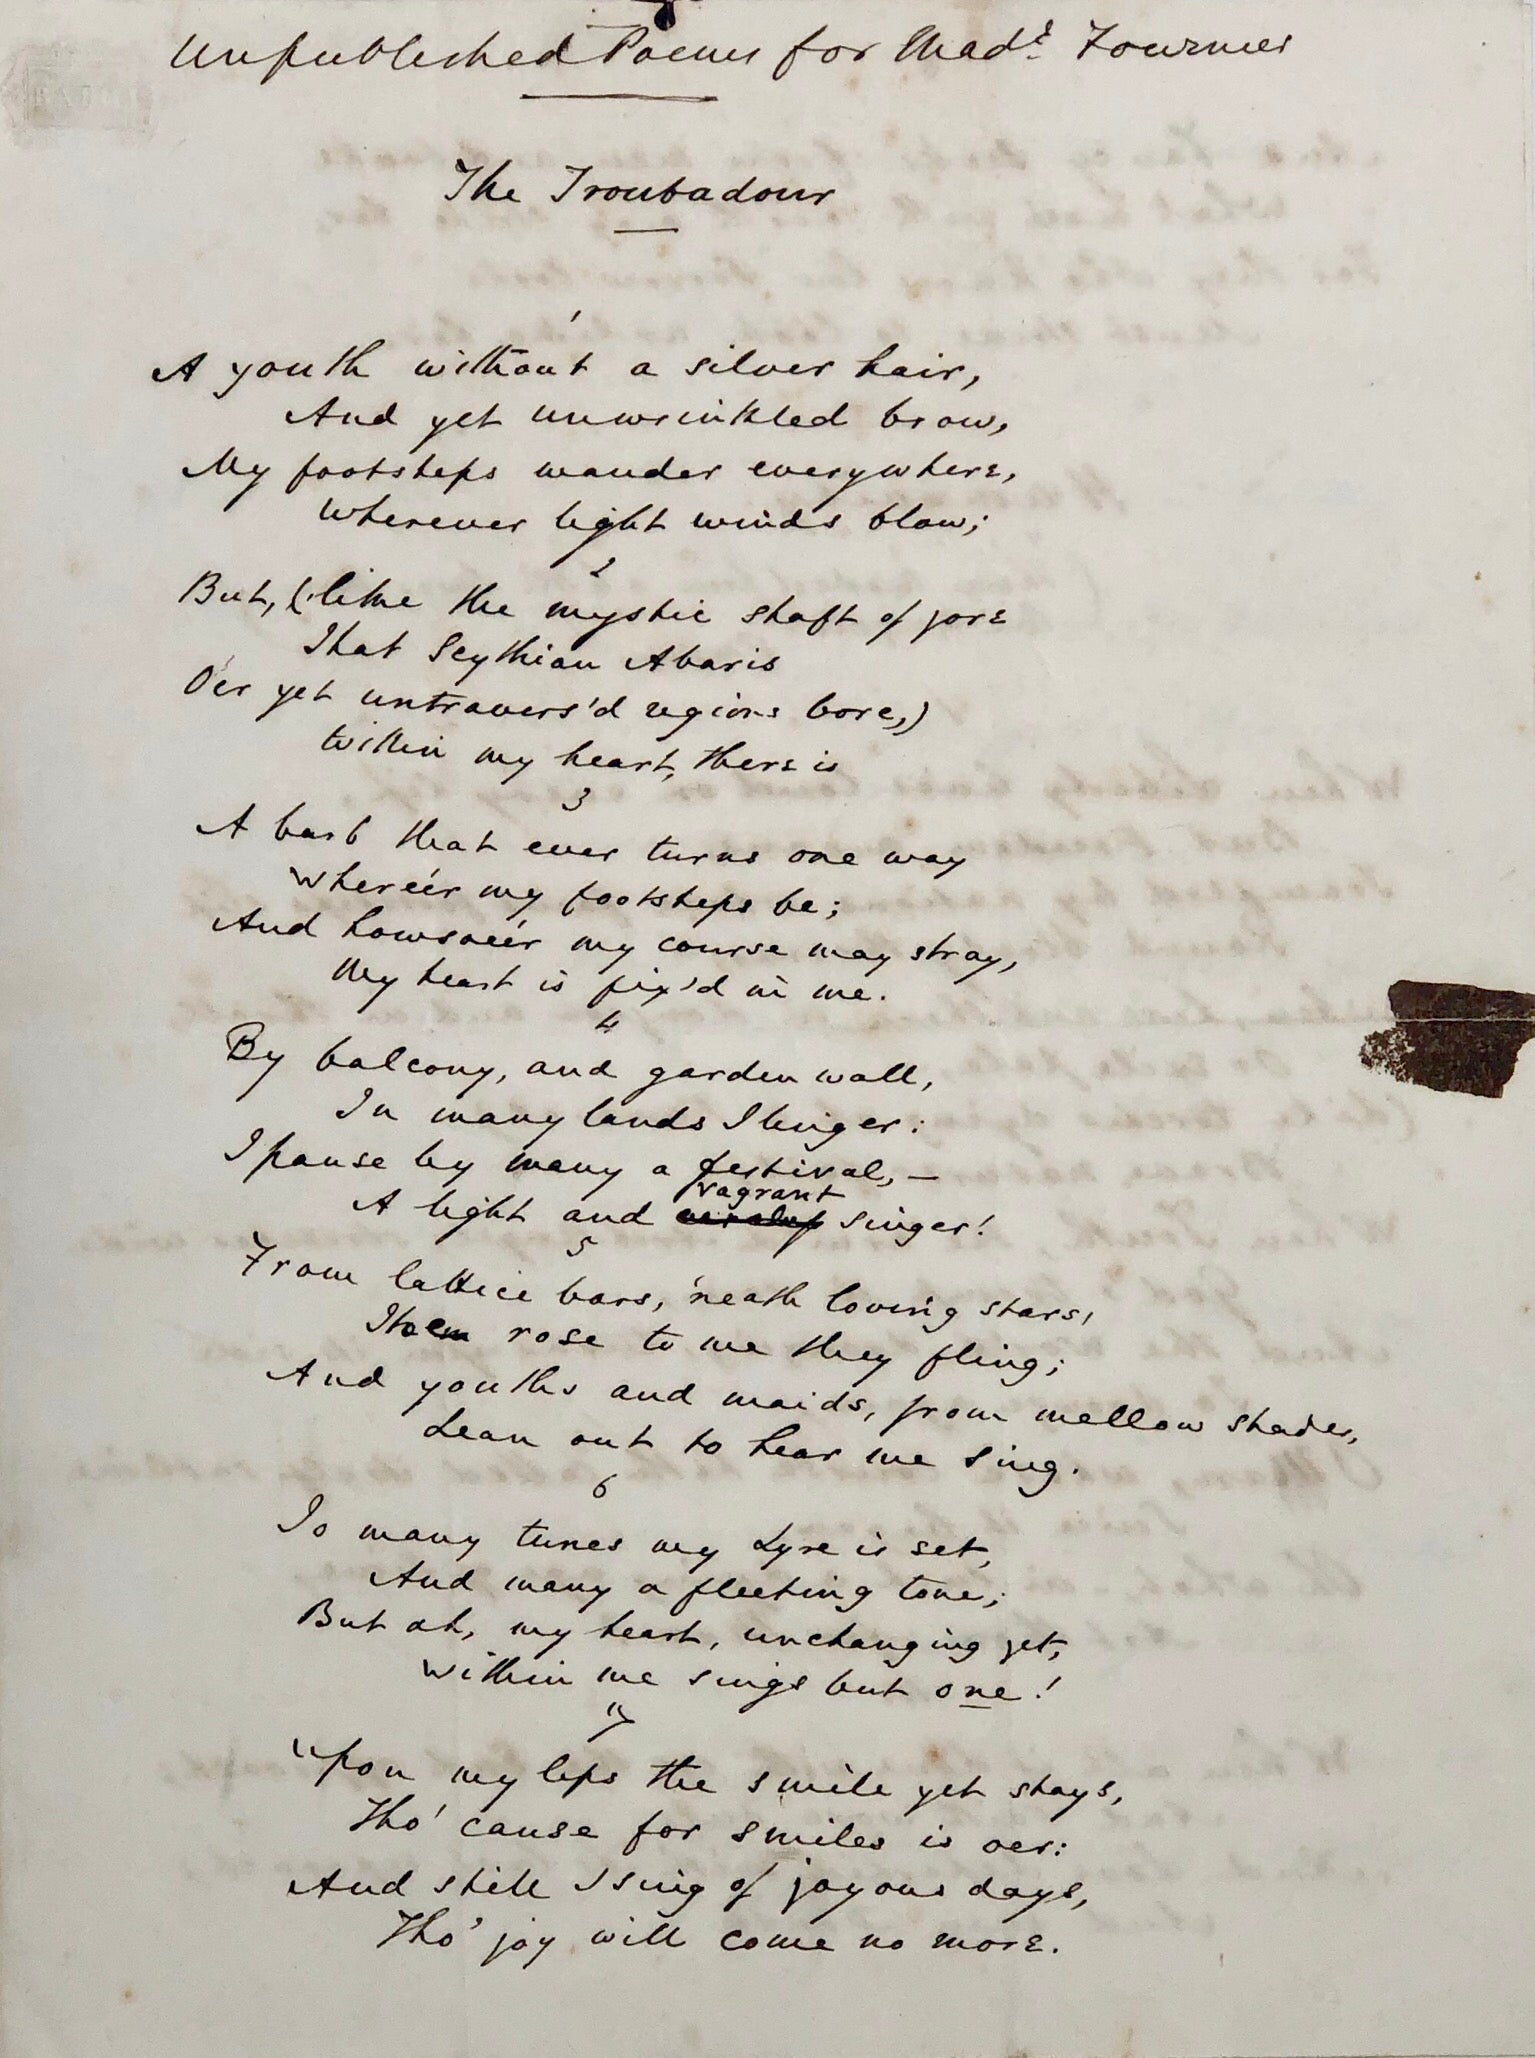 Unpublished Poems for Mad.e Fournier
The Troubadour
1
A youth without a silver hair,
And yet unwrinkled brow,
My footsteps wander everywhere,
Wherever light winds blow;
2
But, (like the mystic shaft of yore
That Scythian Abaris
O'er yet untravers'd regions bore,)
Within my heart, there is
3
A barb that ever turns one way
Where'er my footsteps be;
And howsoe'er my course may stray,
My heart is fix'd in me.
4
By balcony, and garden wall,
In many lands I linger:
I pause by many a festival, —
vagrant
A light and singer!
5
From lattice bars, 'neath loving stars,
The rose to me they fling;
And youths and maids, from mellow shades,
Lean out to hear me sing.
6
To many tunes my Lyre is set,
And many a fleeting tone;
But oh, my heart, unchanging yet,
Within me sings but one!
7
Upon my lips the smile yet stays,
Tho' cause for smiles is oer:
And still I sing of joyous days,
Tho' joy will come no more.